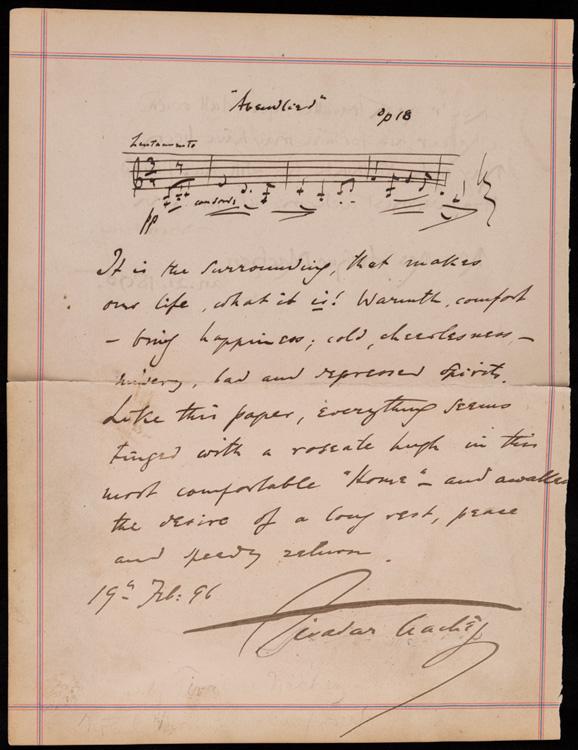 "Abendlied" Op 18
Lentamente
3
4
pp con sord.
It is the surrounding, that makes
our life, what it is! Warmth, comfort
– bring happiness; cold, cheerlessness, –
misery, bad and depressed spirits.
Like this paper, everything seems
tinged with a roseate hugh in this
most comfortable "Home" – and awakes
the desire of a long rest, peace
and speedy return
19th Feb: 96
Tivadar Nachéz